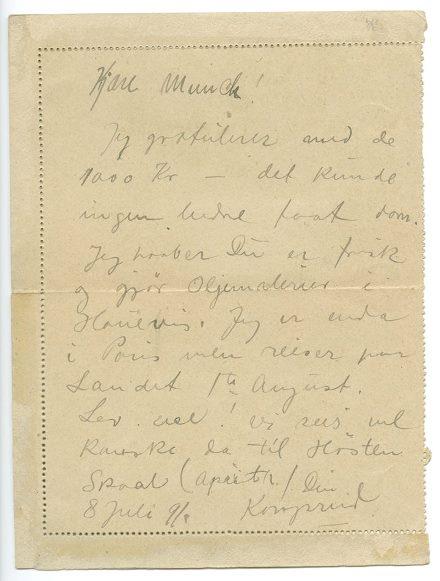 Kjære Munch!
Jeg gratulerer med de
1000 Kr — det kunde
ingen bedre faat dem.
Jeg haaber Du er frisk
og gjör Oljemalerier i
Jeg er enda
i Paris men reiser paa
Landet 1ste August.
Lev vel! vi sees vel
kanske da til Hösten
Skaal ( ) Din
8 Juli 9/